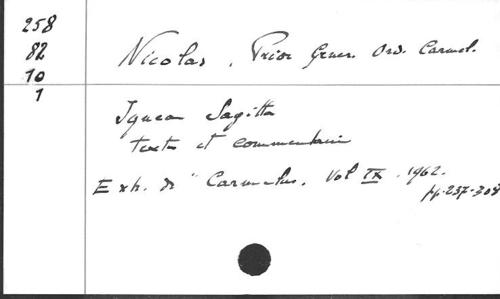 258
82
10
1
Nicolas, Prior Gener. Ord. Carmel.
Ignea Sagitta
texte et commentaire
Extr. de "Carmelus. Vol IX. 1962.
pp. 237-308